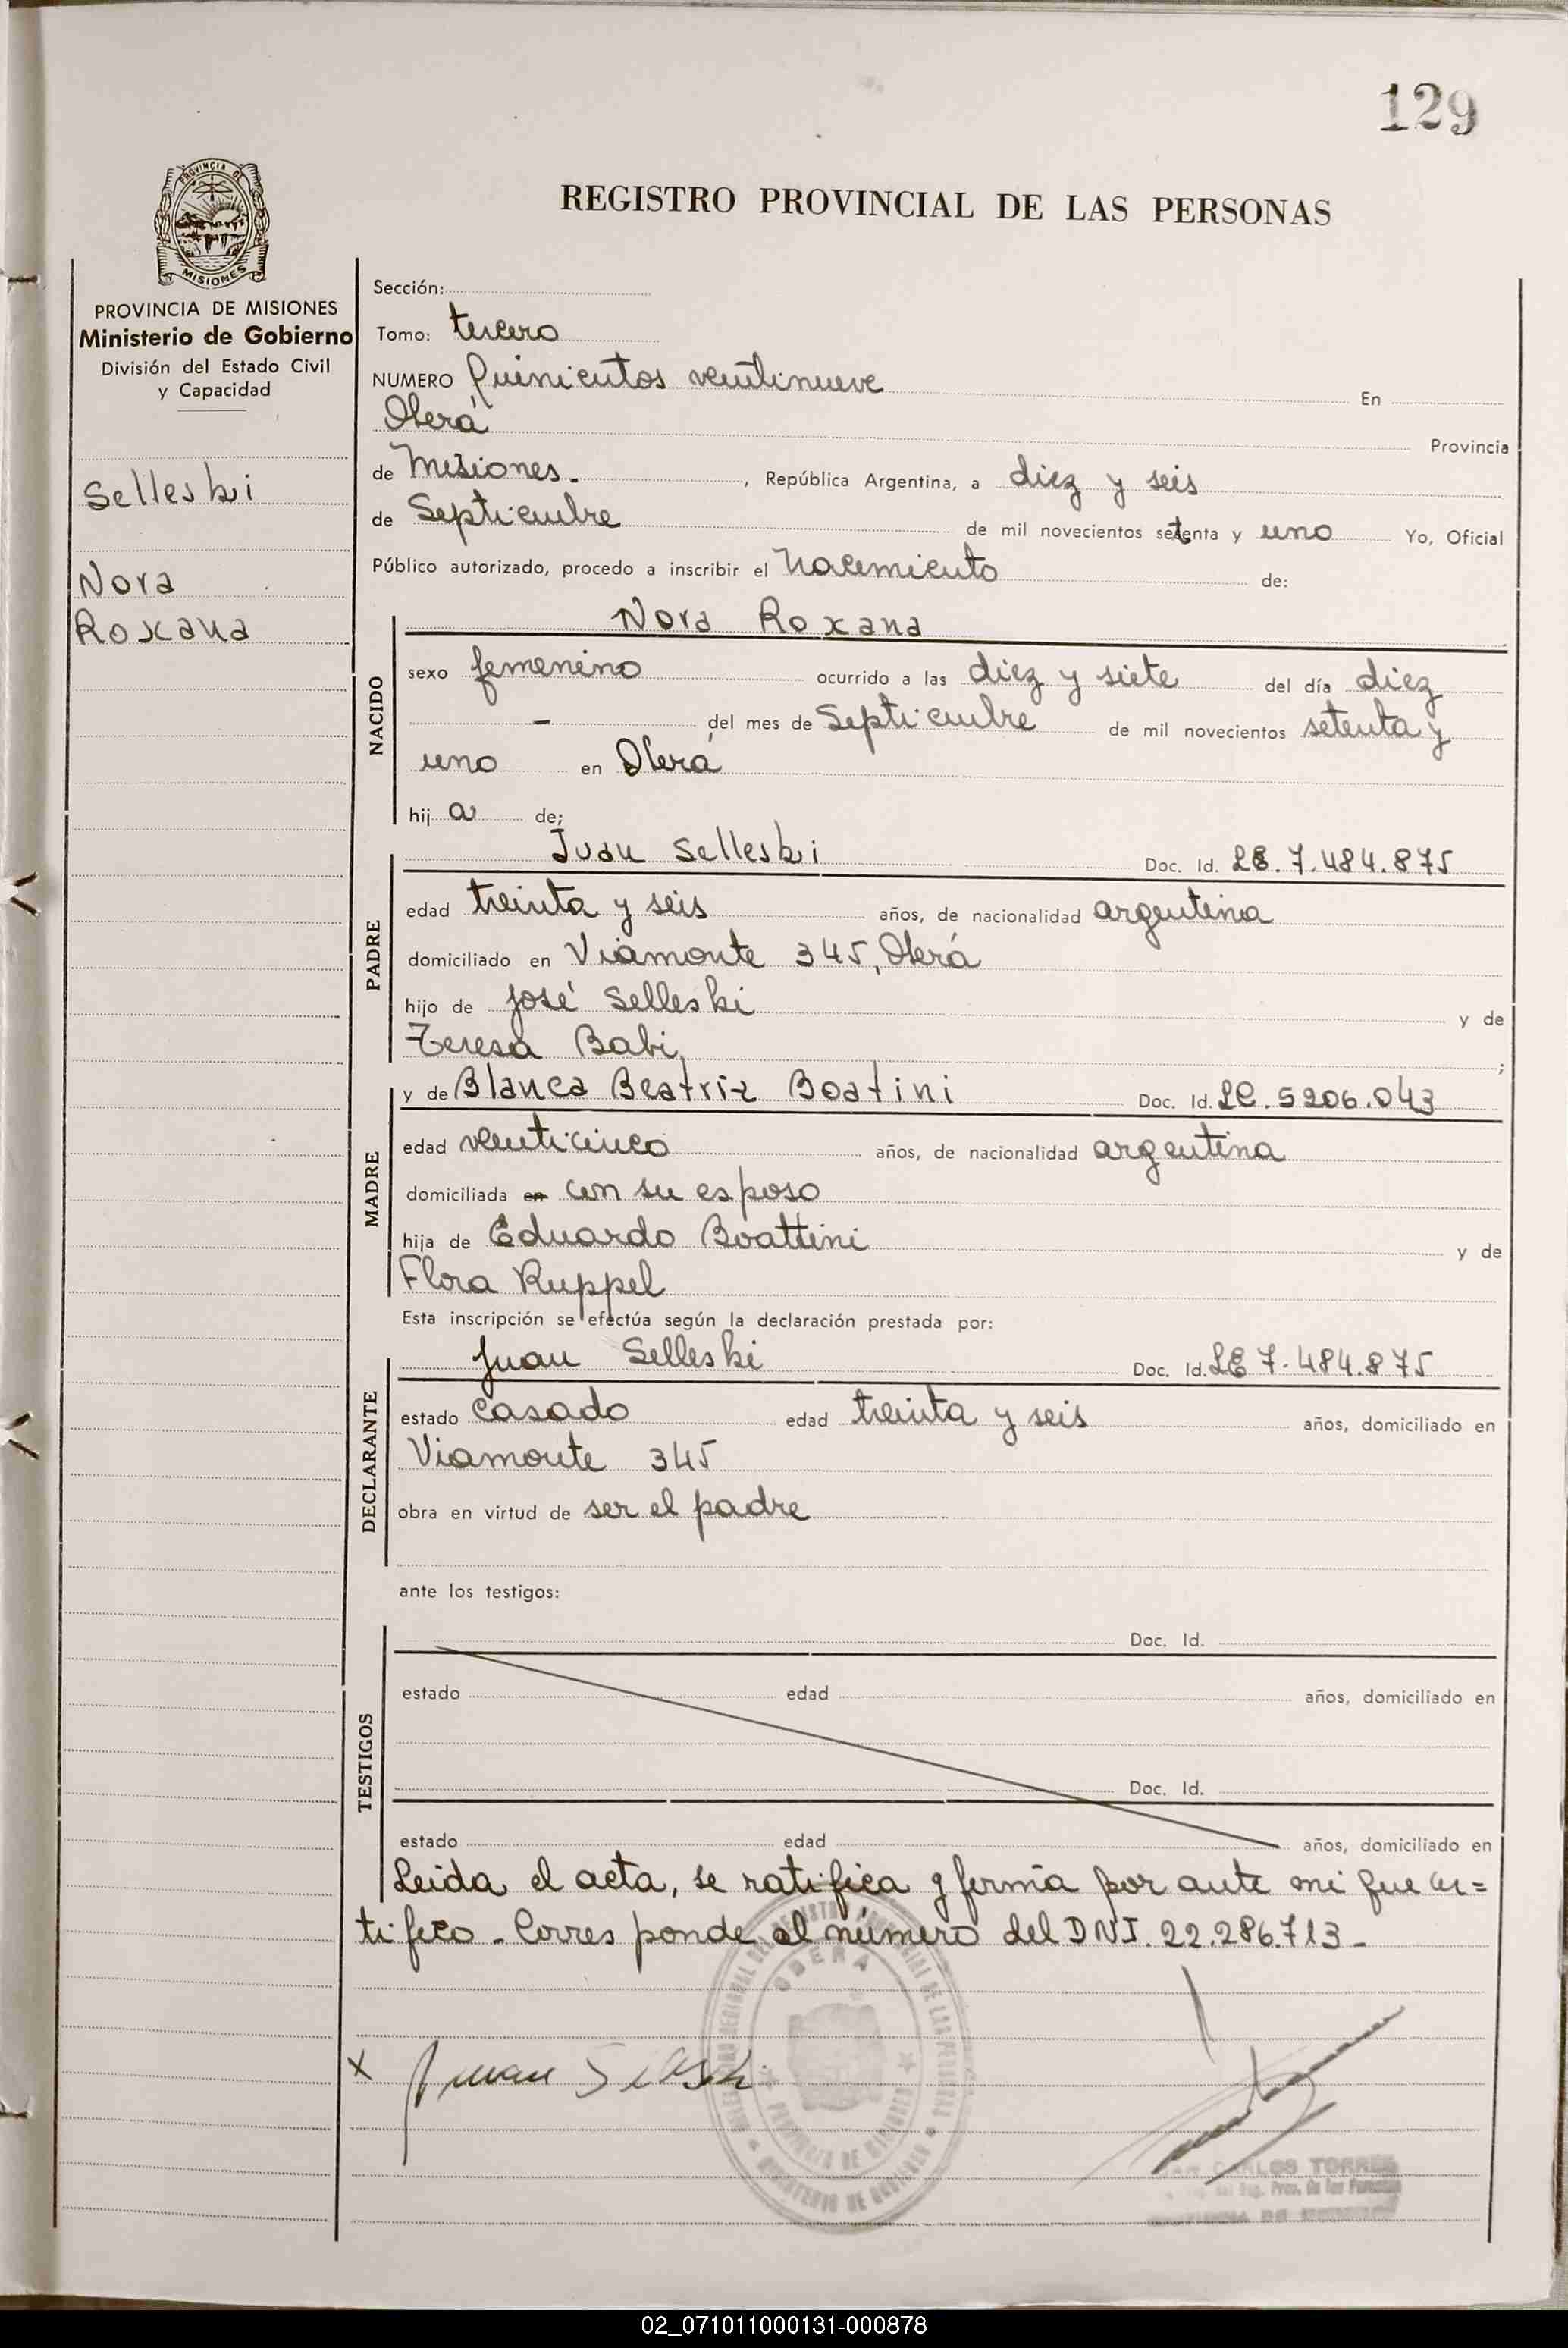 129
PROVINCIA DE
MISIONES
REGISTRO PROVINCIAL DE LAS PERSONAS
PROVINCIA DE MISIONES
Ministerio de Gobierno
División del Estado Civil
y Capacidad
Selleski
Nora
Roxana
Sección:
Tomo: tercero
NUMERO Quinientos veintinueve En
Oberá Provincia
de Misiones. , República Argentina, a diez y seis
de Septiembre de mil novecientos setenta y uno Yo, Oficial
Público autorizado, procedo a inscribir el Nacimiento de:
Nora Roxana
NACIDO
sexo femenino ocurrido a las diez y siete del día diez
- del mes de Septiembre de mil novecientos setenta y
uno en Oberá
hij a de;
Juan Selleski Doc. Id. LE. 7.484.875
PADRE
edad treinta y seis años, de nacionalidad argentina
domiciliado en Viamonte 345, Oberá
hijo de José Selleski y de
Teresa Babi, ;
y de Blanca Beatriz Boatini Doc. Id. LC. 5206.043
MADRE
edad venticinco años, de nacionalidad argentina
domiciliada en con su esposo
hija de Eduardo Boattini y de
Flora Ruppel
Esta inscripción se efectúa según la declaración prestada por:
Juan Selleski Doc. Id. LE 7.484.875
DECLARANTE
estado casado edad treinta y seis años, domiciliado en
Viamonte 345
obra en virtud de ser el padre
ante los testigos:
TESTIGOS
Doc. Id.
estado edad años, domiciliado en
Doc. Id.
estado edad años, domiciliado en
Leida el acta, se ratifica y firma por ante mi que cer=
tifico - Corresponde al número del DNI. 22.286.713-
OBERA
PROVINCIA DE MISIONES
MINISTERIO DE GOBIERNO
x Juan Selleski
CARLOS TORRES
Reg. Prov. de las Personas
02_071011000131-000878